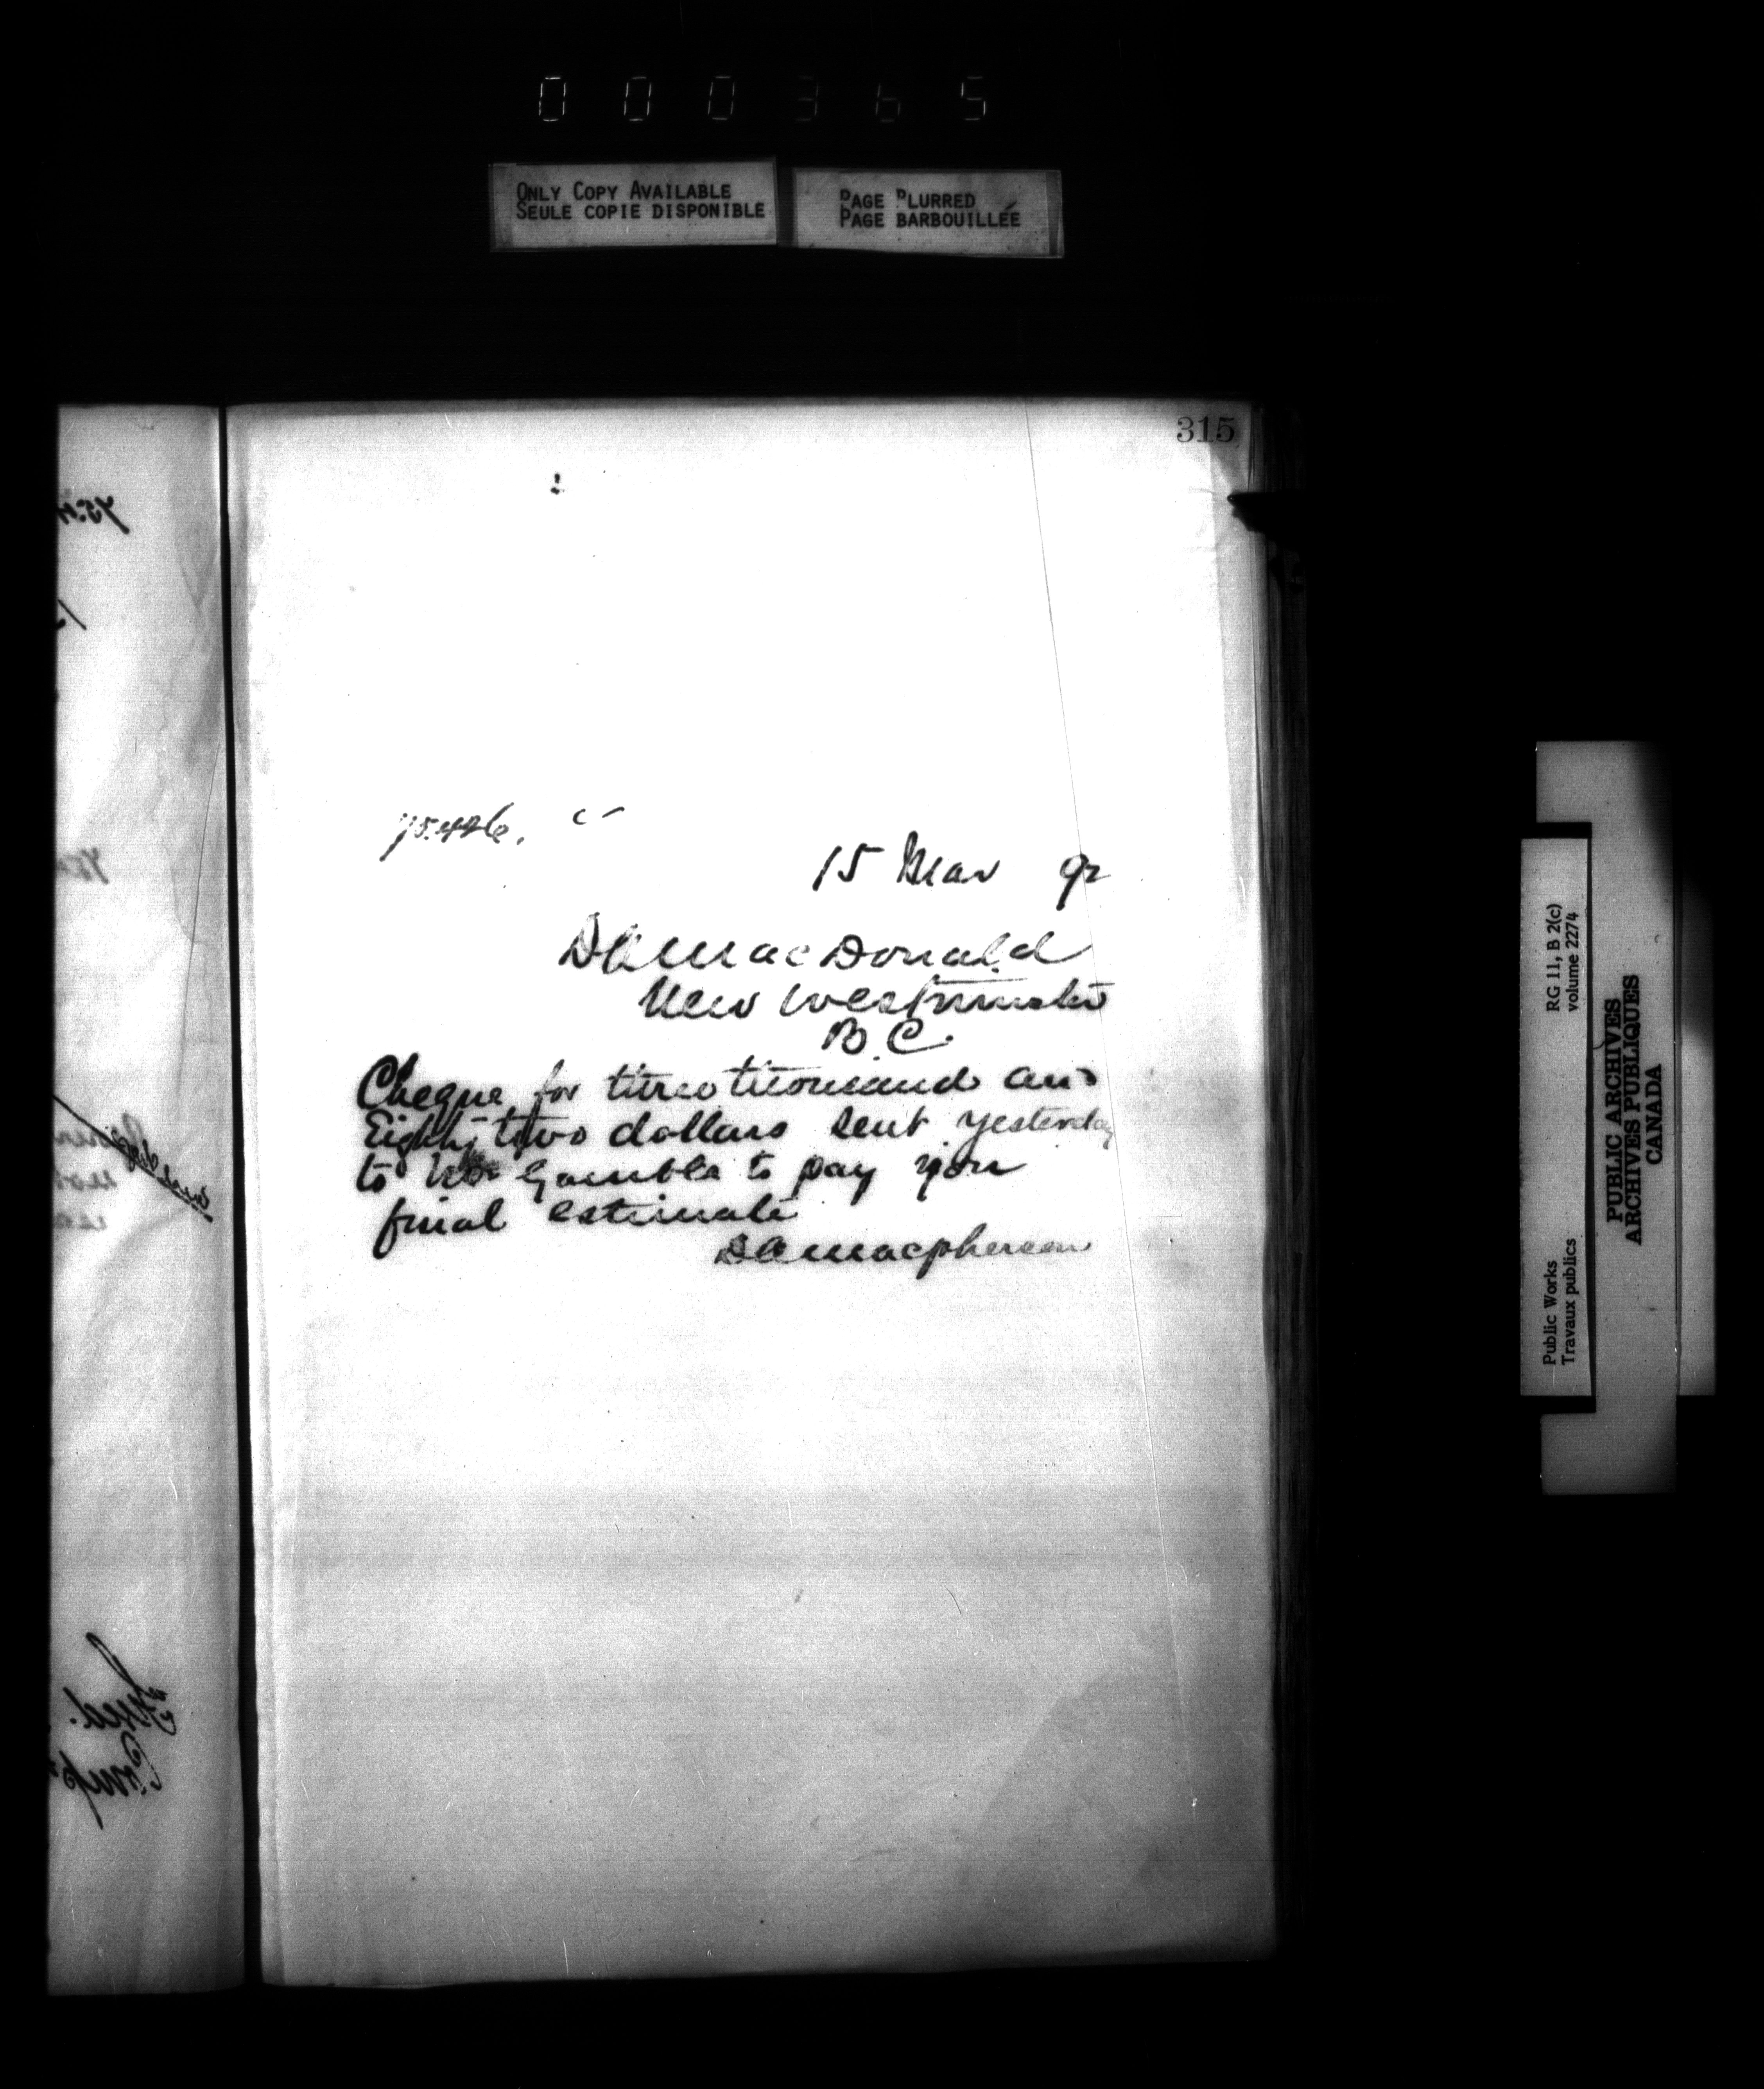 000365
ONLY COPY AVAILABLE
SEULE COPIE DISPONIBLE
PAGE BLURRED
PAGE BARBOUILLÉE
315
75.426.
15 Mar 92
DA MacDonald
New Westminster
B.C.
Cheque for three thousand and
Eighty two dollars sent yesterday
to Gamble to pay your
final estimate
DA Macpherson
RG 11, B 2(c)
volume 2274
Public Works
Travaux publics
PUBLIC ARCHIVES
ARCHIVES PUBLIQUES
CANADA